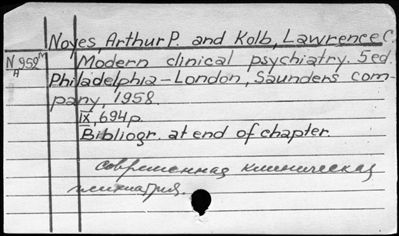 Noyes, Arthur P. and Kolb, Lawrence C.
N 959 M Modern clinical psychiatry. 5ed.
H
Philadelphia-London, Saunders com-
pany, 1958.
IX, 694p.
Bibliogr. at end of chapter
современная клиническая
психиатрия.